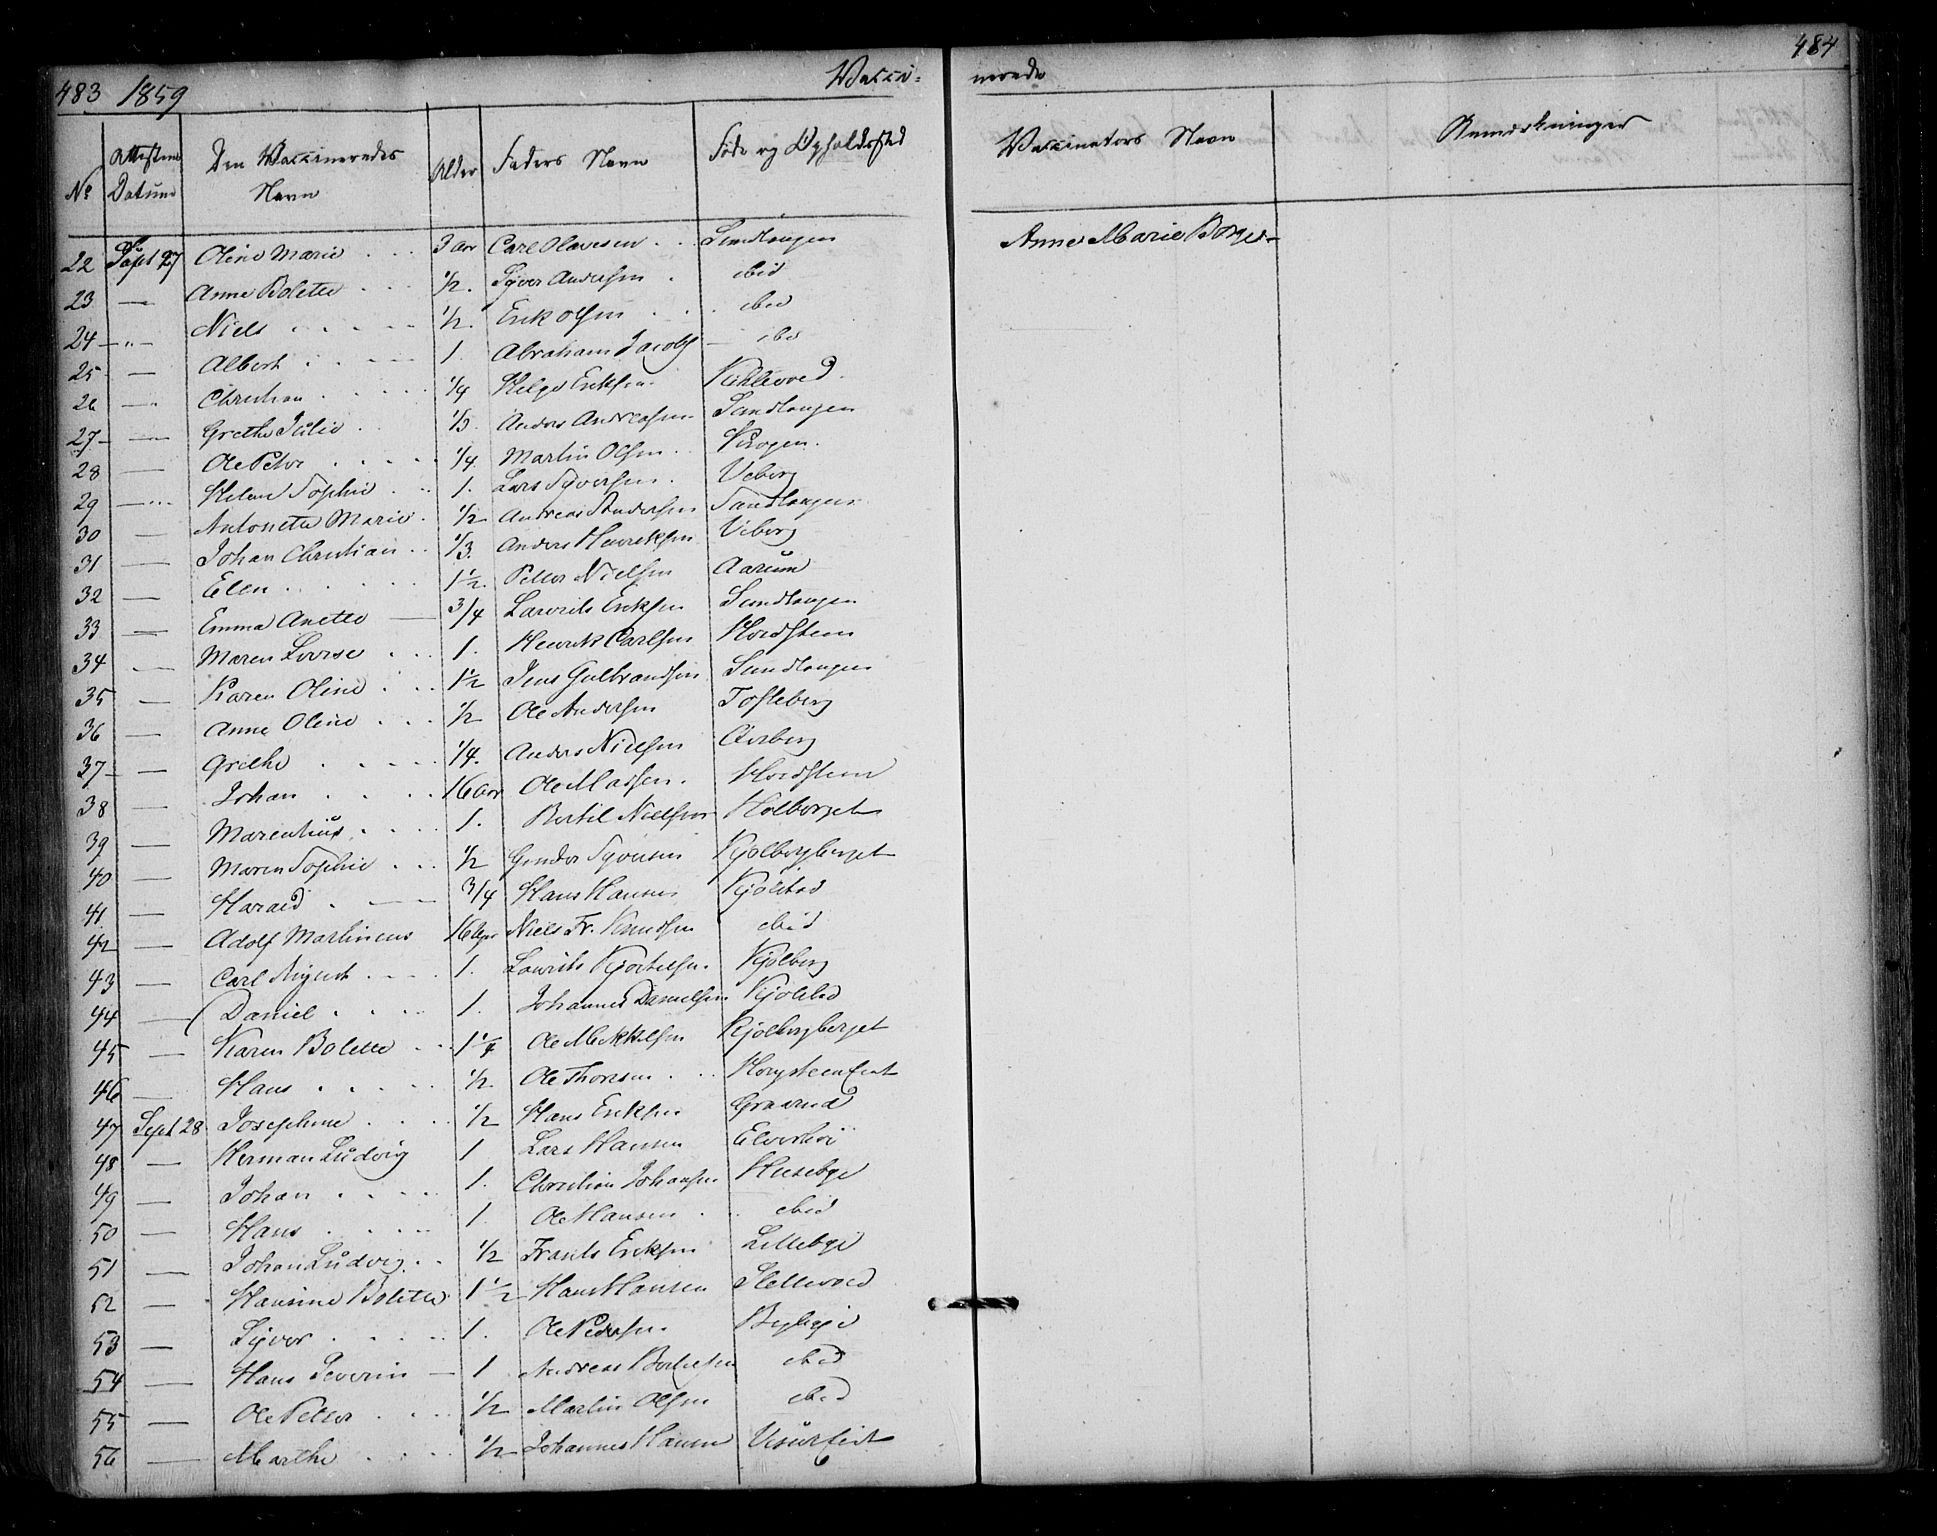 483 1859 Vacci-
nerede 484
No Attestens Datum Den Vaccineredes Navn Alder Faders Navn Føde og Opholdssted Vaccinators Navn Anmærkninger
22 Sept 27 Oline Marie 3 aar Carl Olavesen Sandtangen Anne Marie
23 — Anne Bolette 1/2. Syver Andersen ibid
24 — " — Niels 1/2. Erik Olsen ibid
25 — Albert 1. Abraham Jacobs ibd
26 — Christian 1/4 Helge Eriksen
27 — Grethe Julie 1/3. Anders Andreasen Sandtangen
28 — Ole Peter 1/4. Martin Olsen Krogen.
29 — Helene Sophie 1. Lars Syversen. Veberg
30 — Antonette Marie. 1/2 Andreas Andersen Sandtangen
31 — Johan Christian 1/3. Anders Henriksen Viberg
32 — Ellen 1 1/2. Petter Nielsen Aarum
33 — Emma Anette — 3/4 Lavrits Eriksen Sandtangen
34 — Maren Lovise 1. Henrik Carlsen Hordsteen
35 — Karen Oline 1 1/2 Jens Gulbrandsen Sandtangen
36 — Anne Oline 1/2 Ole Andersen Tofteberg
37 — Grethe 1/4. Anders Nielsen
38 — Johan 16 aar Ole Madsen. Hordsteen
39 — Marenthius 1. Bertil Nielsen Holberget
40 — Maren Sophie 1/2 Gunder Syversen Kjølbergberget
41 — Harald 3/4 Hans Hansen Kjølstad
42 — Adolf Martinius 16 Uger Niels Fr. Knudsen ibid
43 — Carl August 1. Lavrits Kjostelsen. Kjølberg
44 — Daniel 1. Johannes Danielsen Kjølstad
45 — Karen Bolette 1 1/4 Ole Mikkelsen Kjølbergberget
46 — Hans 1/2. Ole Thoresen
47 Sept 28 Josephine 1/2 Hans Eriksen Graarud
48 — Herman Ludvig 1 Lars Hansen Elverhøi
49 — Johan 1. Christian Johansen Husebye
50 — Hans 1. Ole Hansen ibid
51 — Johan Ludvig 1/2 Frants Eriksen Lillebye
52 — Hansine Bolette 1 1/2 Hans Hansen
53 — Syver 1. Ole Pedersen.
54 — Hans Severin — 1 Andreas Bertelsen ibid
55 — Ole Petter 1/2 Martin Olsen ibid
56 — Marthe 1/2 Johannes Hansen